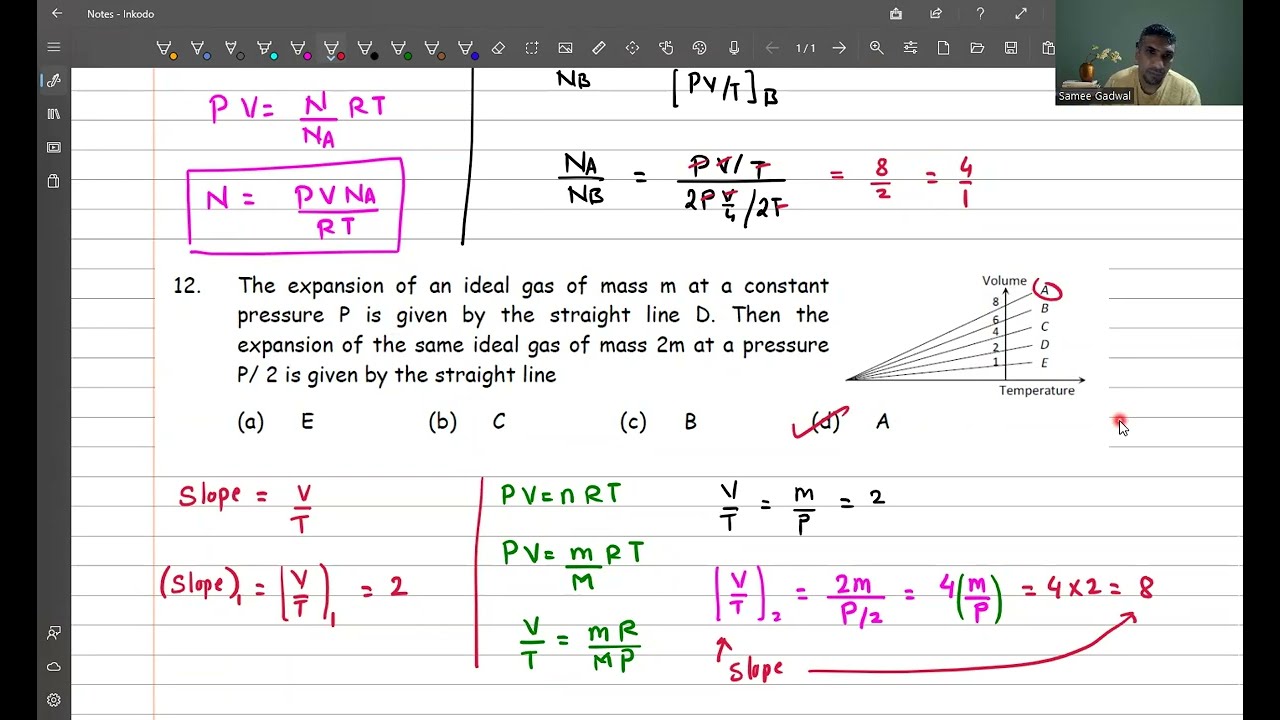 Notes - Inkodo
1/1
Samee Gadwal
PV = N/NA RT
N = PVNA/RT
NB [PV/T]B
NA/NB = PV/T / 2P V/4 /2T = 8/2 = 4/1
12. The expansion of an ideal gas of mass m at a constant
pressure P is given by the straight line D. Then the
expansion of the same ideal gas of mass 2m at a pressure
P/ 2 is given by the straight line
Volume
8 A
6 B
4 C
2 D
1 E
Temperature
(a) E (b) C (c) B (d) A
Slope = V/T
(Slope)1 = [V/T]1 = 2
PV = nRT
PV = m/M RT
V/T = mR/MP
V/T = m/P = 2
[V/T]2 = 2m/P/2 = 4(m/P) = 4×2 = 8
Slope